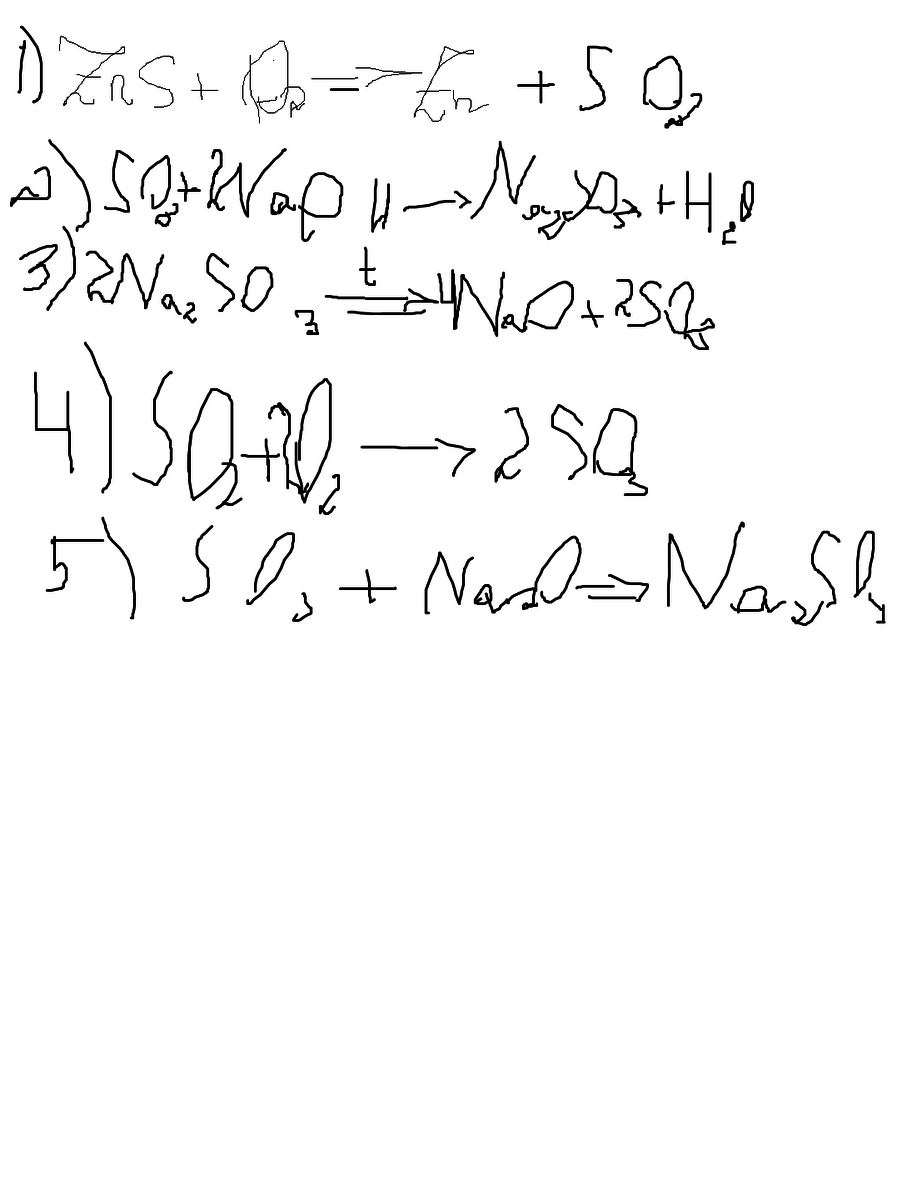 1) ZnS + O₂ ⟹ Zn + SO₂
2) SO₂ + 2NaOH → Na₂SO₃ + H₂O
3) 2Na₂SO₃ =t=> 4NaO + 2SO₂
4) SO₂ + 2O₂ → 2SO₃
5) SO₃ + Na₂O ⟹ Na₂SO₄